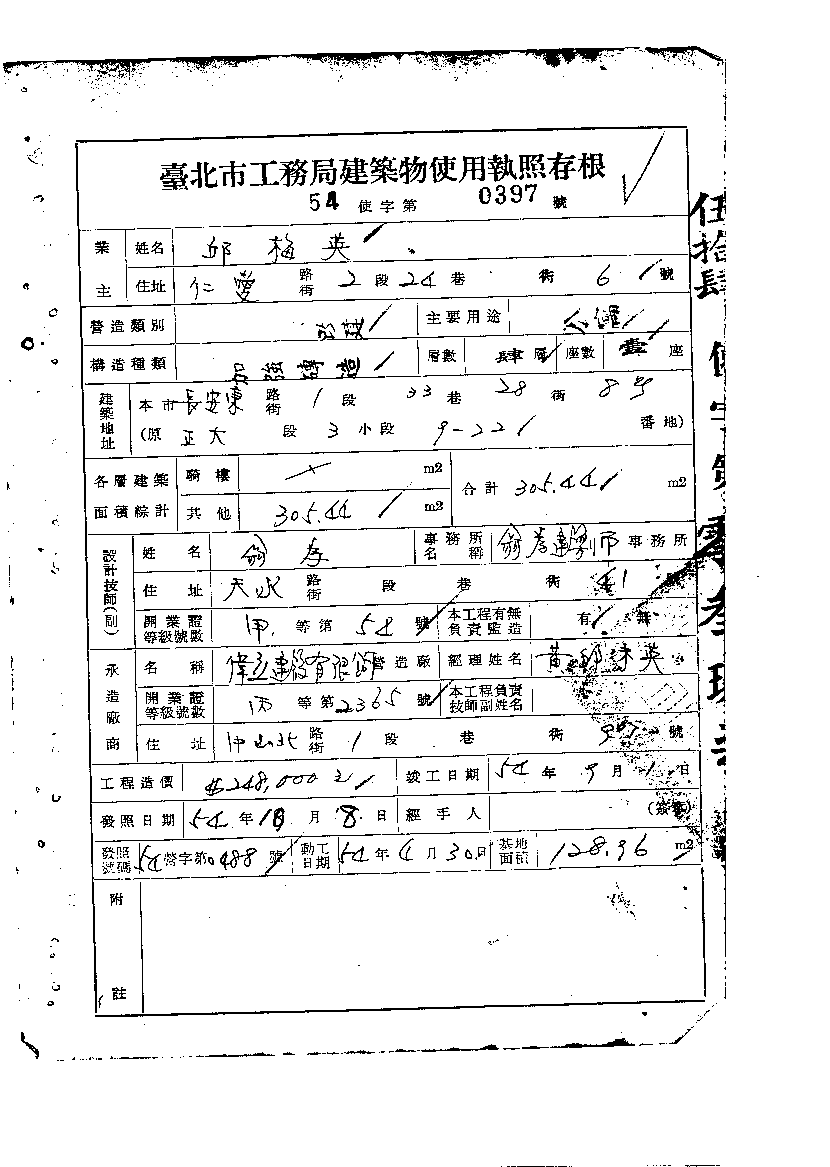 臺北市工務局建築物使用執照存根
54 使字第 0397 號
業主 姓名 邱梅英
住址 仁愛 路街 2 段 24 巷 街 6 號
營造類別 主要用途 公寓
構造種類 加強磚造 層數 肆層 座數 壹座
建築地址 本市長安東 路街 1 段 33 巷 28 街 8號
(原 正大 段 3 小段 9-22 番地)
各層建築面積綜計 騎樓 m2 合計 305.44 m2
其他 305.44 m2
設計技師(副) 姓名 翁 事務所名稱 事務所
住址 天水 路街 段 巷 街 41 號
開業證等級號數 甲 等第 54 號 本工程有無負責監造 有 無
承造廠商 名稱 偉立建設有限公司 營造廠 經理姓名 黃 英
開業證等級號數 丙 等第 2365 號 本工程負責技師副姓名
住址 中山北 路街 1 段 巷 街 號
工程造價 $248,000元 竣工日期 54 年 9 月 1 日
發照日期 54 年 10 月 8 日 經手人 (簽章)
發照號碼 54 營字第0488 號 動工日期 54 年 4 月 30 日 基地面積 128.96 m2
附註
伍拾肆 使字第零叁玖